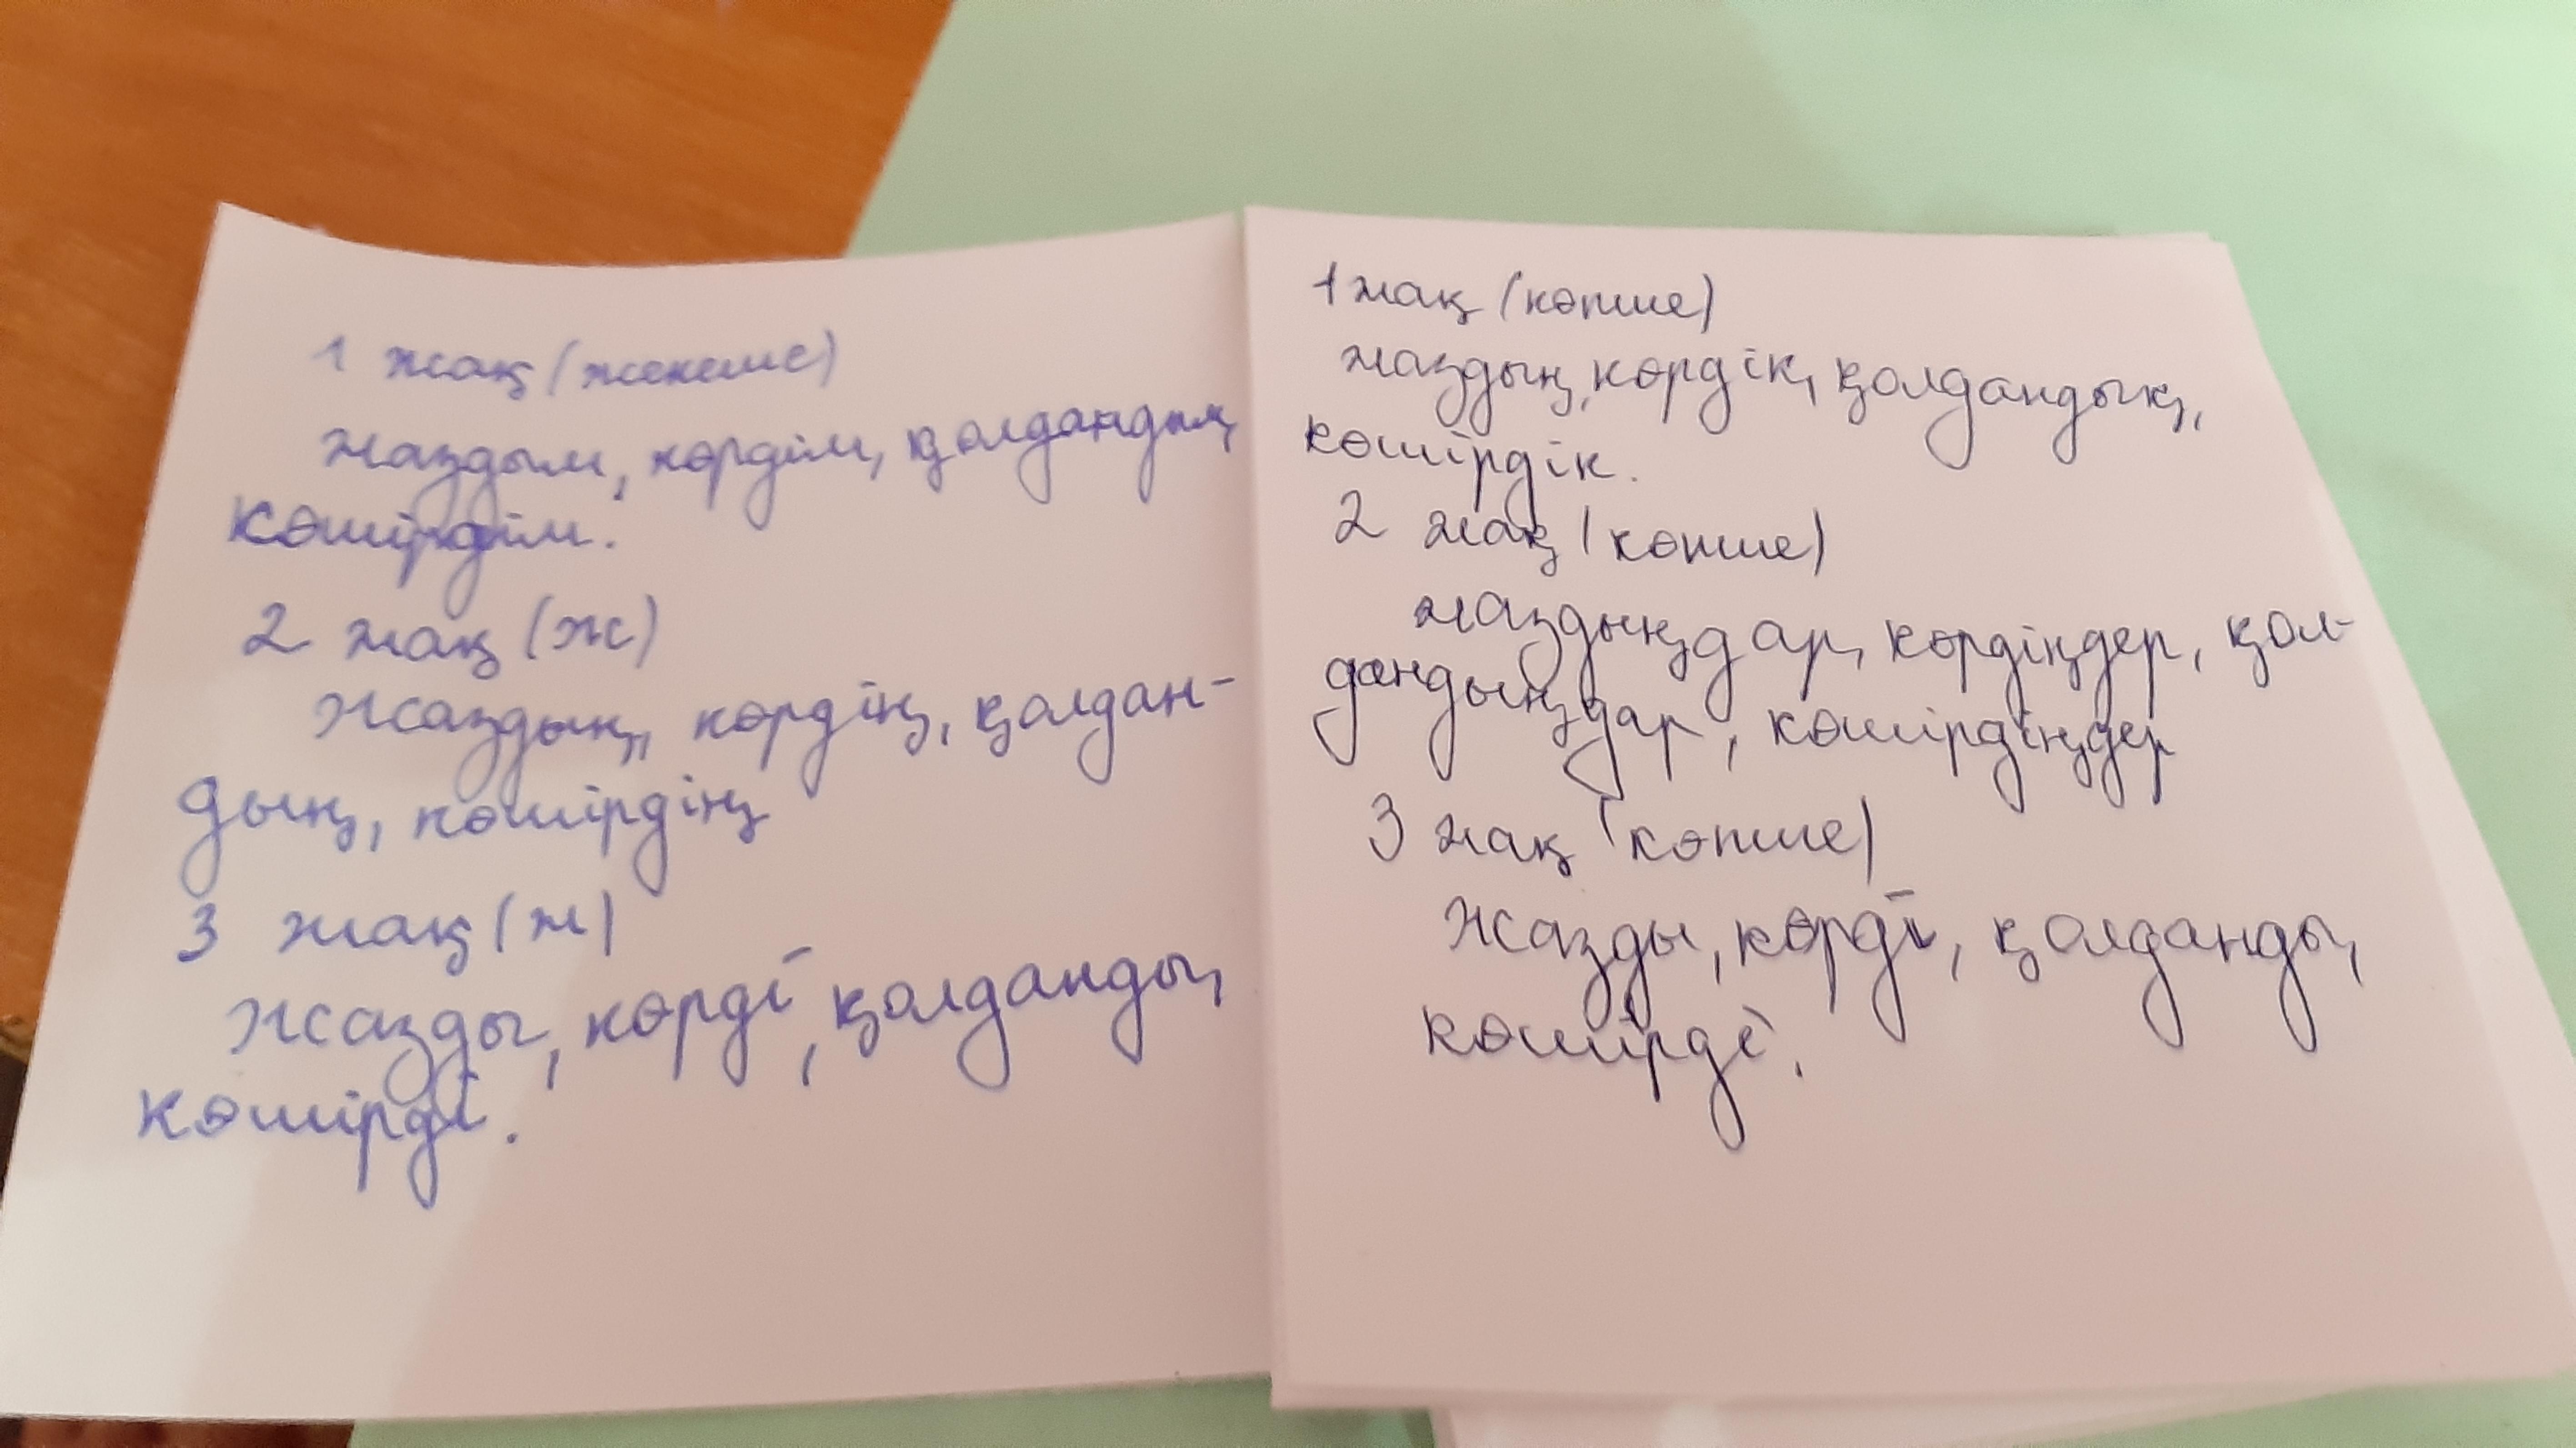 1 жақ (жекеше)
жаздым, көрдім, қолдандым,
көшірдім.
2 жақ (ж)
Жаздың, көрдің, қолдан-
дың, көшірдің
3 жақ (ж)
Жазды, көрді, қолданды,
көшірді.
1 жақ (көпше)
жаздық, көрдік, қолдандық,
көшірдік.
2 жақ (көпше)
жаздыңдар, көрдіңдер, қол-
дандыңдар, көшірдіңдер
3 жақ (көпше)
Жазды, көрді, қолданды,
көшірді.